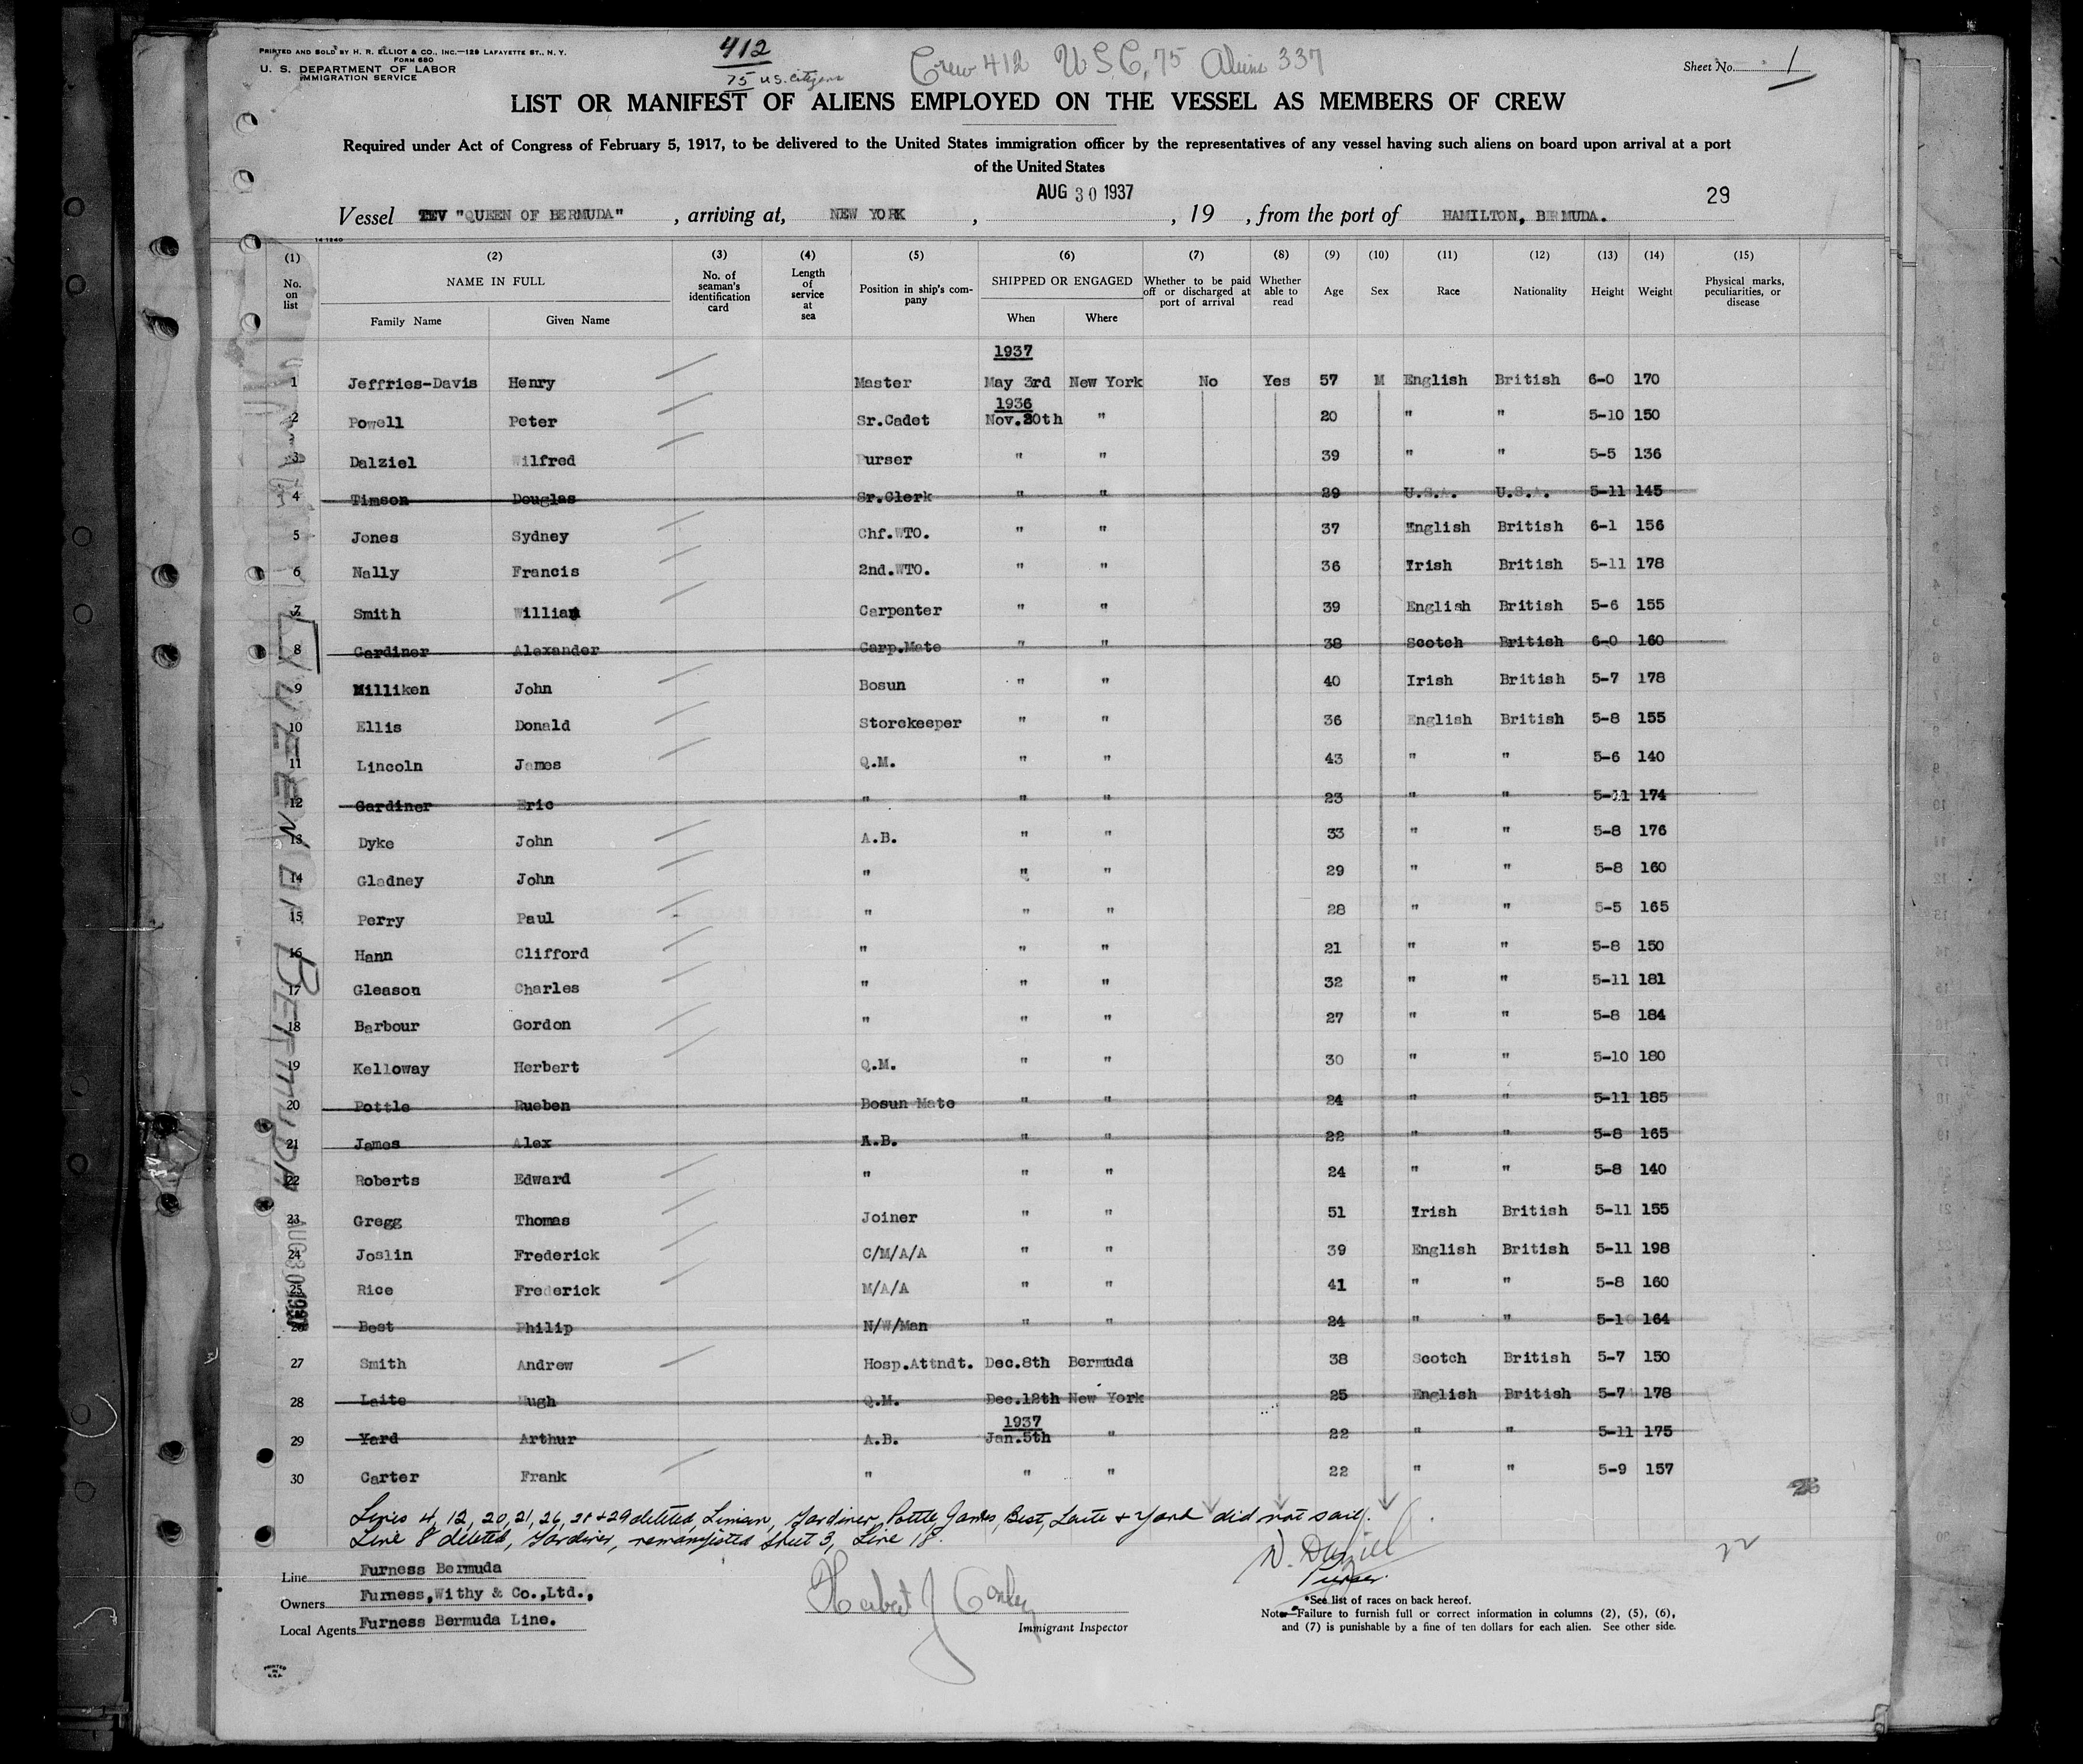 PRINTED AND SOLD BY H. R. ELLIOT & CO., INC.—129 LAFAYETTE ST., N. Y.
FORM 680
U. S. DEPARTMENT OF LABOR
IMMIGRATION SERVICE
412
75 U.S. Citizens
Crew 412 U.S.C. 75 Aliens 337
Sheet No. 1
LIST OR MANIFEST OF ALIENS EMPLOYED ON THE VESSEL AS MEMBERS OF CREW
Required under Act of Congress of February 5, 1917, to be delivered to the United States immigration officer by the representatives of any vessel having such aliens on board upon arrival at a port
of the United States
AUG 30 1937
29
Vessel TEV "QUEEN OF BERMUDA" , arriving at, NEW YORK , , 19 , from the port of HAMILTON, BERMUDA.
14 1240
(1) (2) (3) (4) (5) (6) (7) (8) (9) (10) (11) (12) (13) (14) (15)
No. on list NAME IN FULL Family Name Given Name No. of seaman's identification card Length of service at sea Position in ship's company SHIPPED OR ENGAGED When Where Whether to be paid off or discharged at port of arrival Whether able to read Age Sex Race Nationality Height Weight Physical marks, peculiarities, or disease
1937
1 Jeffries-Davis Henry Master May 3rd New York No Yes 57 M English British 6-0 170
1936
2 Powell Peter Sr.Cadet Nov.20th " 20 " " 5-10 150
3 Dalziel Wilfred Purser " " 39 " " 5-5 136
4 Timson Douglas Sr.Clerk " " 29 U.S.A. U.S.A. 5-11 145
5 Jones Sydney Chf.WTO. " " 37 English British 6-1 156
6 Nally Francis 2nd.WTO. " " 36 Irish British 5-11 178
7 Smith William Carpenter " " 39 English British 5-6 155
8 Gardiner Alexander Carp.Mate " " 38 Scotch British 6-0 160
9 Milliken John Bosun " " 40 Irish British 5-7 178
10 Ellis Donald Storekeeper " " 36 English British 5-8 155
11 Lincoln James Q.M. " " 43 " " 5-6 140
12 Gardiner Eric " " " 23 " " 5-11 174
13 Dyke John A.B. " " 33 " " 5-8 176
14 Gladney John " " " 29 " " 5-8 160
15 Perry Paul " " " 28 " " 5-5 165
16 Hann Clifford " " " 21 " " 5-8 150
17 Gleason Charles " " " 32 " " 5-11 181
18 Barbour Gordon " " " 27 " " 5-8 184
19 Kelloway Herbert Q.M. " " 30 " " 5-10 180
20 Pottle Rueben Bosun Mate " " 24 " " 5-11 185
21 James Alex A.B. " " 22 " " 5-8 165
22 Roberts Edward " " " 24 " " 5-8 140
23 Gregg Thomas Joiner " " 51 Irish British 5-11 155
24 Joslin Frederick C/M/A/A " " 39 English British 5-11 198
25 Rice Frederick M/A/A " " 41 " " 5-8 160
26 Best Philip N/W/Man " " 24 " " 5-10 164
27 Smith Andrew Hosp.Attndt. Dec.8th Bermuda 38 Scotch British 5-7 150
28 Laite Hugh Q.M. Dec.12th New York 25 English British 5-7 178
1937
29 Yard Arthur A.B. Jan.5th " 22 " " 5-11 175
30 Carter Frank " " " 22 " " 5-9 157
QUEEN OF BERMUDA
AUG 30 1937
Lines 4, 12, 20, 21, 26, 28 + 29 deleted, Timson, Gardiner, Pottle, James, Best, Laite + Yard did not sail.
Line 8 deleted, Gardiner, remanifested sheet 3, Line 18.
W. Dalziel
Purser
22
Line Furness Bermuda
Owners Furness,Withy & Co.,Ltd.,
Local Agents Furness Bermuda Line.
Immigrant Inspector
*See list of races on back hereof.
Note—Failure to furnish full or correct information in columns (2), (5), (6),
and (7) is punishable by a fine of ten dollars for each alien. See other side.
PRINTED IN U.S.A.